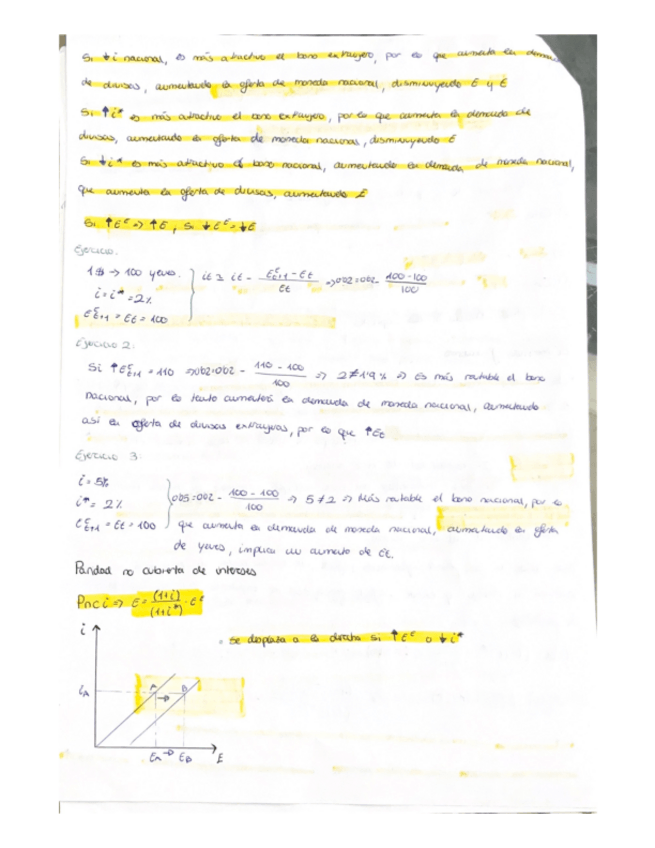 Si ↓i nacional, es más atractivo el bono extranjero, por lo que aumenta la demanda
de divisas, aumentando la oferta de moneda nacional, disminuyendo E y E
Si ↑i* es más atractivo el bono extranjero, por lo que aumenta la demanda de
divisas, aumentando la oferta de moneda nacional, disminuyendo E
Si ↓i* es más atractivo el bono nacional, aumentando la demanda de moneda nacional,
que aumenta la oferta de divisas, aumentando E
Si ↑Eᴱ => ↑E, Si ↓Eᴱ = ↓E
Ejercicio.
1$ → 100 yenes.
i = i* = 2%
Eᴱt+1 = Et = 100
it = it - (Eᴱt+1 - Et)/Et => 0'02 = 0'02 - (100-100)/100
Ejercicio 2:
Si ↑Eᴱt+1 = 110 => 0'02 = 0'02 - (110-100)/100 => 2≠1'9% => Es más rentable el bono
nacional, por lo tanto aumentará la demanda de moneda nacional, aumentando
así la oferta de divisas extranjeras, por lo que ↑Et
Ejercicio 3:
i = 5%
i* = 2%
Eᴱt+1 = Et = 100
0'05 = 0'02 - (100-100)/100 => 5≠2 => Más rentable el bono nacional, por lo
que aumenta la demanda de moneda nacional, aumentando la oferta
de yenes, implica un aumento de Et.
Paridad no cubierta de intereses
Pnci => E = (1+i)/(1+i*) · Eᴱ
i
- Se desplaza a la derecha si ↑Eᴱ o ↓i*
iA
A → B
EA → EB E